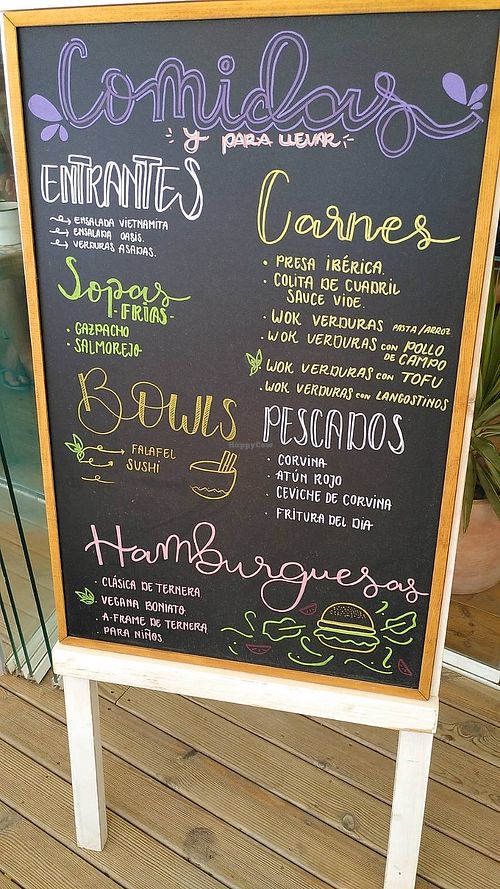 Comidas
Y PARA LLEVAR
ENTRANTES
ENSALADA VIETNAMITA
ENSALADA OASIS.
VERDURAS ASADAS.
Sopas
-FRIAS-
• GAZPACHO
• SALMOREJO
BOWLS
FALAFEL
SUSHI
Carnes
• PRESA IBÉRICA.
• COLITA DE CUADRIL
SAUCE VIDE.
• WOK VERDURAS PASTA/ARROZ
• WOK VERDURAS CON POLLO
DE CAMPO
• WOK VERDURAS CON TOFU
• WOK VERDURAS CON LANGOSTINOS
PESCADOS
• CORVINA
• ATÚN ROJO
• CEVICHE DE CORVINA
• FRITURA DEL DÍA
Hamburguesas
• CLÁSICA DE TERNERA
• VEGANA BONIATO
• A-FRAME DE TERNERA
• PARA NIÑOS
HappyCow